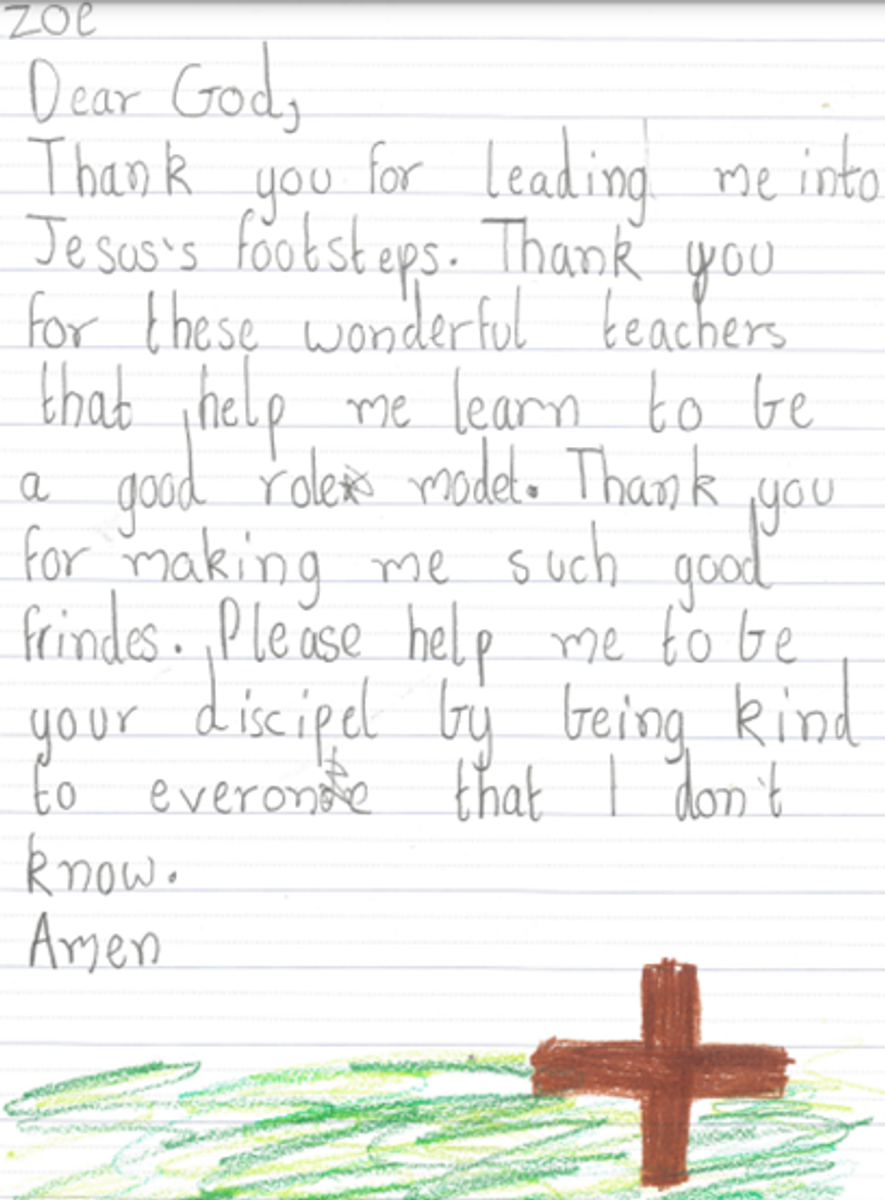 zoe
Dear God,
Thank you for leading me into
Jesus's footsteps. Thank you
for these wonderful teachers
that help me learn to be
a good role model. Thank you
for making me such good
frindes. Please help me to be
your discipel by being kind
to everone that I don't
know.
Amen